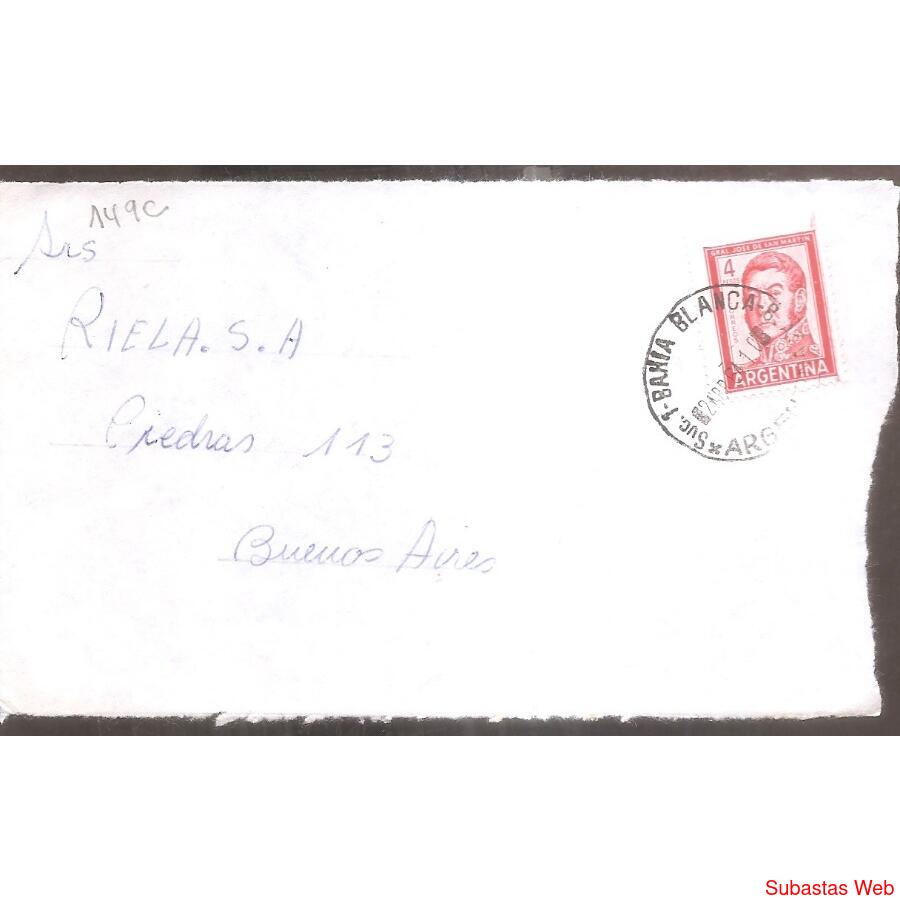 149c
Srs
RIELA. S. A
Piedras 113
Buenos Aires
GRAL JOSE DE SAN MARTIN
4
PESOS
CORREOS
ARGENTINA
Suc. 1-BAHIA BLANCA-B
Subastas Web